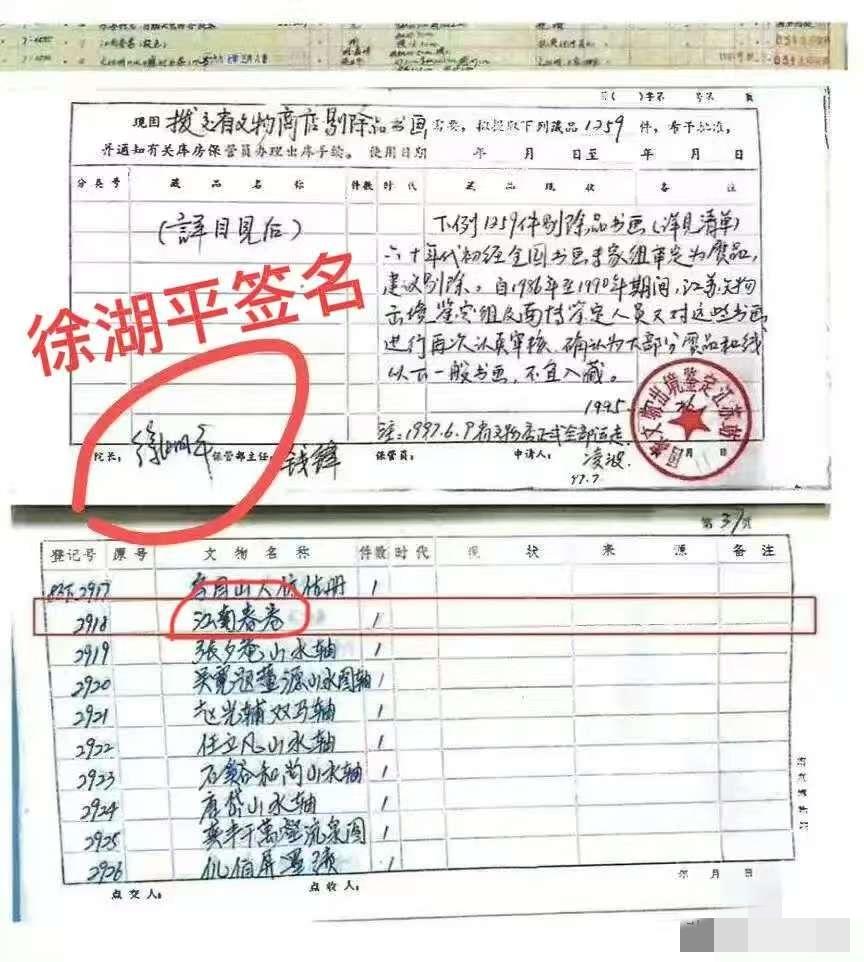 江南春卷
号第 页
现因 拨交有文物商店剔除品书画 需要,拟提取下列藏品1259件,希予批准,
并通知有关库房保管员办理出库手续。 使用日期 年 月 日至 年 月 日
分类号 藏品名称 件数 时代 藏品现状 备注
(詳目見后)
下例1259件剔除品书画(详见清单)
六十年代初经全国书画专家组审定为赝品,
建议剔除。自1986年至1990年期间,江苏文物
出境鉴定组及南博鉴定人员又对这些书画
进行再次认真审核,确认为大部分赝品和线
以下一般书画,不宜入藏。
徐湖平签名
1995
注:1997.6.9有文物店正式全部运走
院长: 徐湖平 保管部主任: 钱锋 保管员: 申请人: 凌波
97.7.
文物出境鉴定江苏站
月 日
第37页
登记号 源号 文物名称 件数 时代 现状 来源 备注
2917 1
2918 江南春卷 1
2919 張夕庵山水轴 1
2920 吴寬題董源山水图轴 1
2921 赵光辅双马轴 1
2922 任立凡山水轴 1
2923 石溪和尚山水轴 1
2924 唐岱山水轴 1
2925 流泉图 1
2926 1
点交人: 点收人: 年 月 日